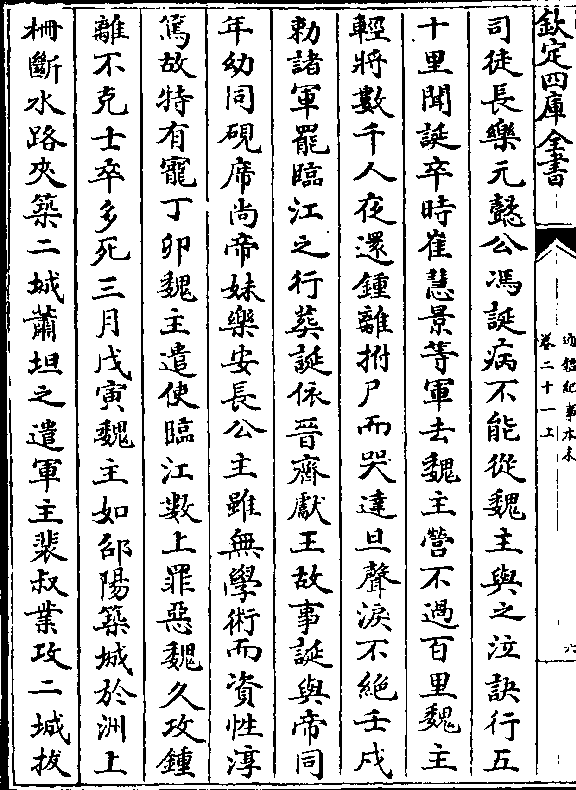 欽定四庫全書
通鑑紀事本末
卷二十一上
六
司徒長樂元懿公馮誕病不能從魏主與之泣訣行五
十里聞誕卒時崔慧景等軍去魏主營不過百里魏主
輕將數千人夜還鍾離拊尸而哭達旦聲淚不絕壬戍
勅諸軍罷臨江之行葬誕依晉齊獻王故事誕與帝同
年幼同硯席尚帝妹樂安長公主雖無學術而資性淳
篤故特有寵丁卯魏主遣使臨江數上罪惡魏久攻鍾
離不克士卒多死三月戊寅魏主如邵陽築城於洲上
柵斷水路夾築二城蕭坦之遣軍主裴叔業攻二城拔